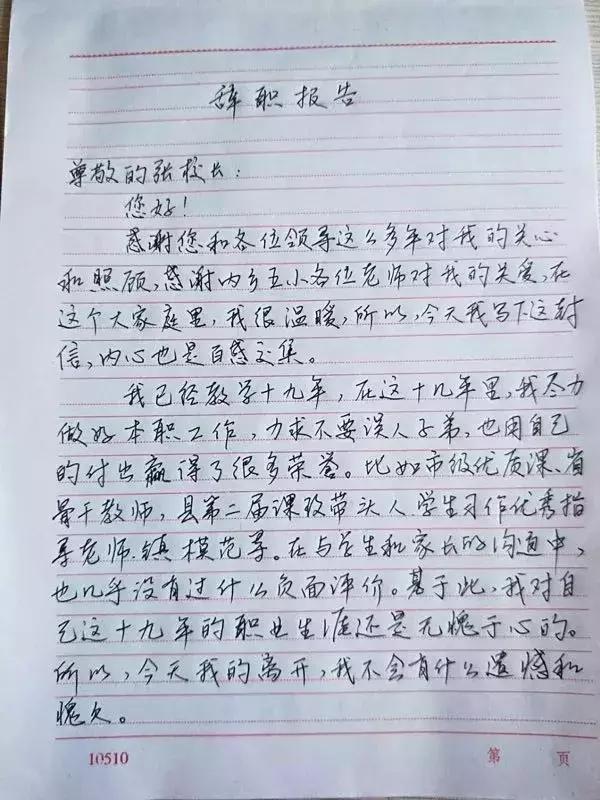 辞职报告
尊敬的张校长：
您好！
感谢您和各位领导这么多年对我的关心
和照顾，感谢内乡五小各位老师对我的关爱，在
这个大家庭里，我很温暖，所以，今天我写下这封
信，内心也是百感交集。
我已经教学十九年，在这十几年里，我尽力
做好本职工作，力求不要误人子弟，也用自己
的付出赢得了很多荣誉。比如市级优质课、省
骨干教师，县第二届课改带头人学生习作优秀指
导老师镇模范等。在与学生和家长的沟通中，
也几乎没有过什么负面评价。基于此，我对自
己这十九年的职业生涯还是无愧于心的。
所以，今天我的离开，我不会有什么遗憾和
愧欠。
10510 第 页